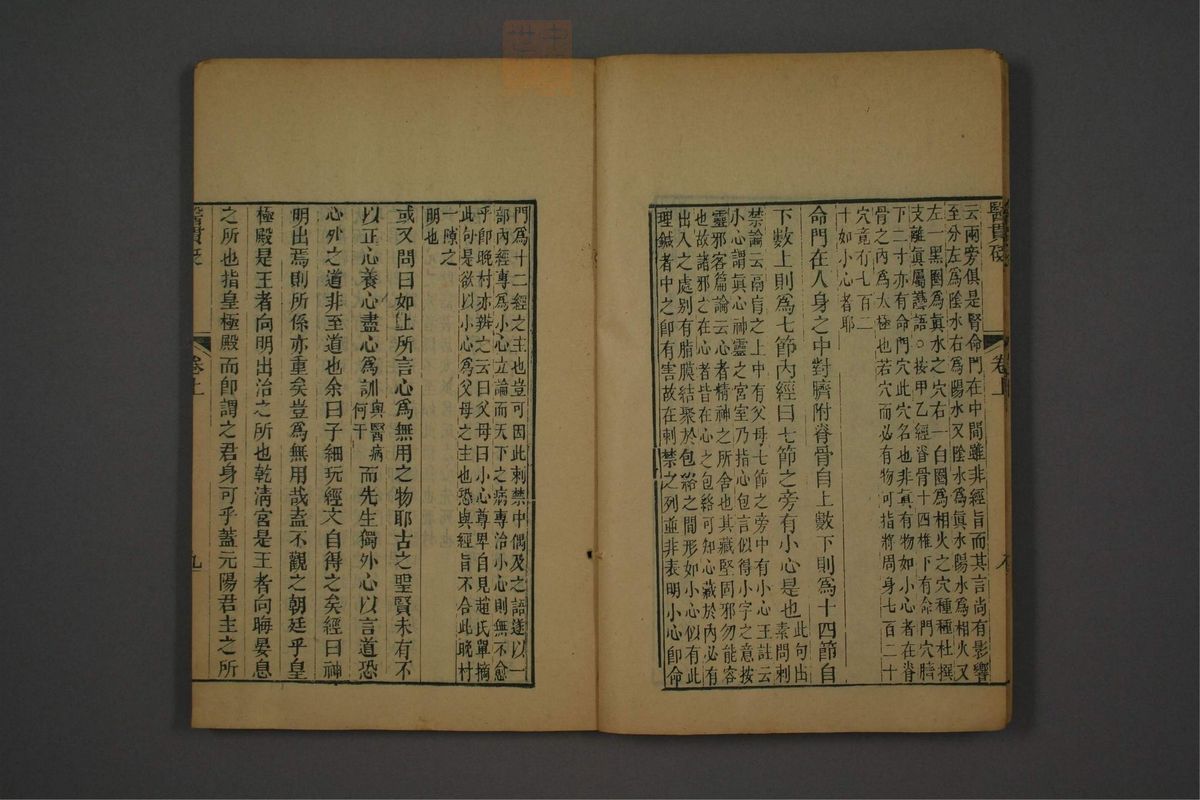 醫貫砭
卷上
八
云兩旁俱是腎命門在中間雖非經旨而其言尚有影響
至分左為陰水右為陽水又陰水為眞水陽水為相火又
左一黑圈為眞水之穴右一白圈為相火之穴種種杜撰
支離眞屬讆語○按甲乙經脊骨十四椎下有命門穴臍
下二寸亦有命門穴此穴名也非眞有物如小心者在脊
骨之內為太極也若穴而必有物可指將周身七百二十
穴竟有七百二
十如小心者耶
命門在人身之中對臍附脊骨自上數下則為十四節自
下數上則為七節內經曰七節之旁有小心是也
此句出
素問刺
禁論云鬲肓之上中有父母七節之旁中有小心王註云
小心謂眞心神靈之宮室乃指心包言似得小字之意按
靈邪客篇論云心者精神之所舍也其藏堅固邪勿能容
也故諸邪之在心者皆在心之包絡可知心藏於內必有
出入之處別有脂膜結聚於包絡之間形如小心似有此
理鍼者中之卽有害故在刺禁之列並非表明小心卽命
門為十二經之主也豈可因此刺禁中偶及之語遂以一
部內經專為小心立論而天下之病專治小心則無不愈
乎卽晚村亦辨之云曰父母曰小心尊卑自見趙氏單摘
此句是欲以小心為父母之主也恐與經旨不合此晚村
一隙之
明也
或又問曰如上所言心為無用之物耶古之聖賢未有不
以正心養心盡心為訓
與醫病
何干
而先生獨外心以言道恐
心外之道非至道也余曰子細玩經文自得之矣經曰神
明出焉則所係亦重矣豈為無用哉盍不觀之朝廷乎皇
極殿是王者向明出治之所也乾清宮是王者向晦宴息
之所也指皇極殿而卽謂之君身可乎蓋元陽君主之所
醫貫砭
卷上
九